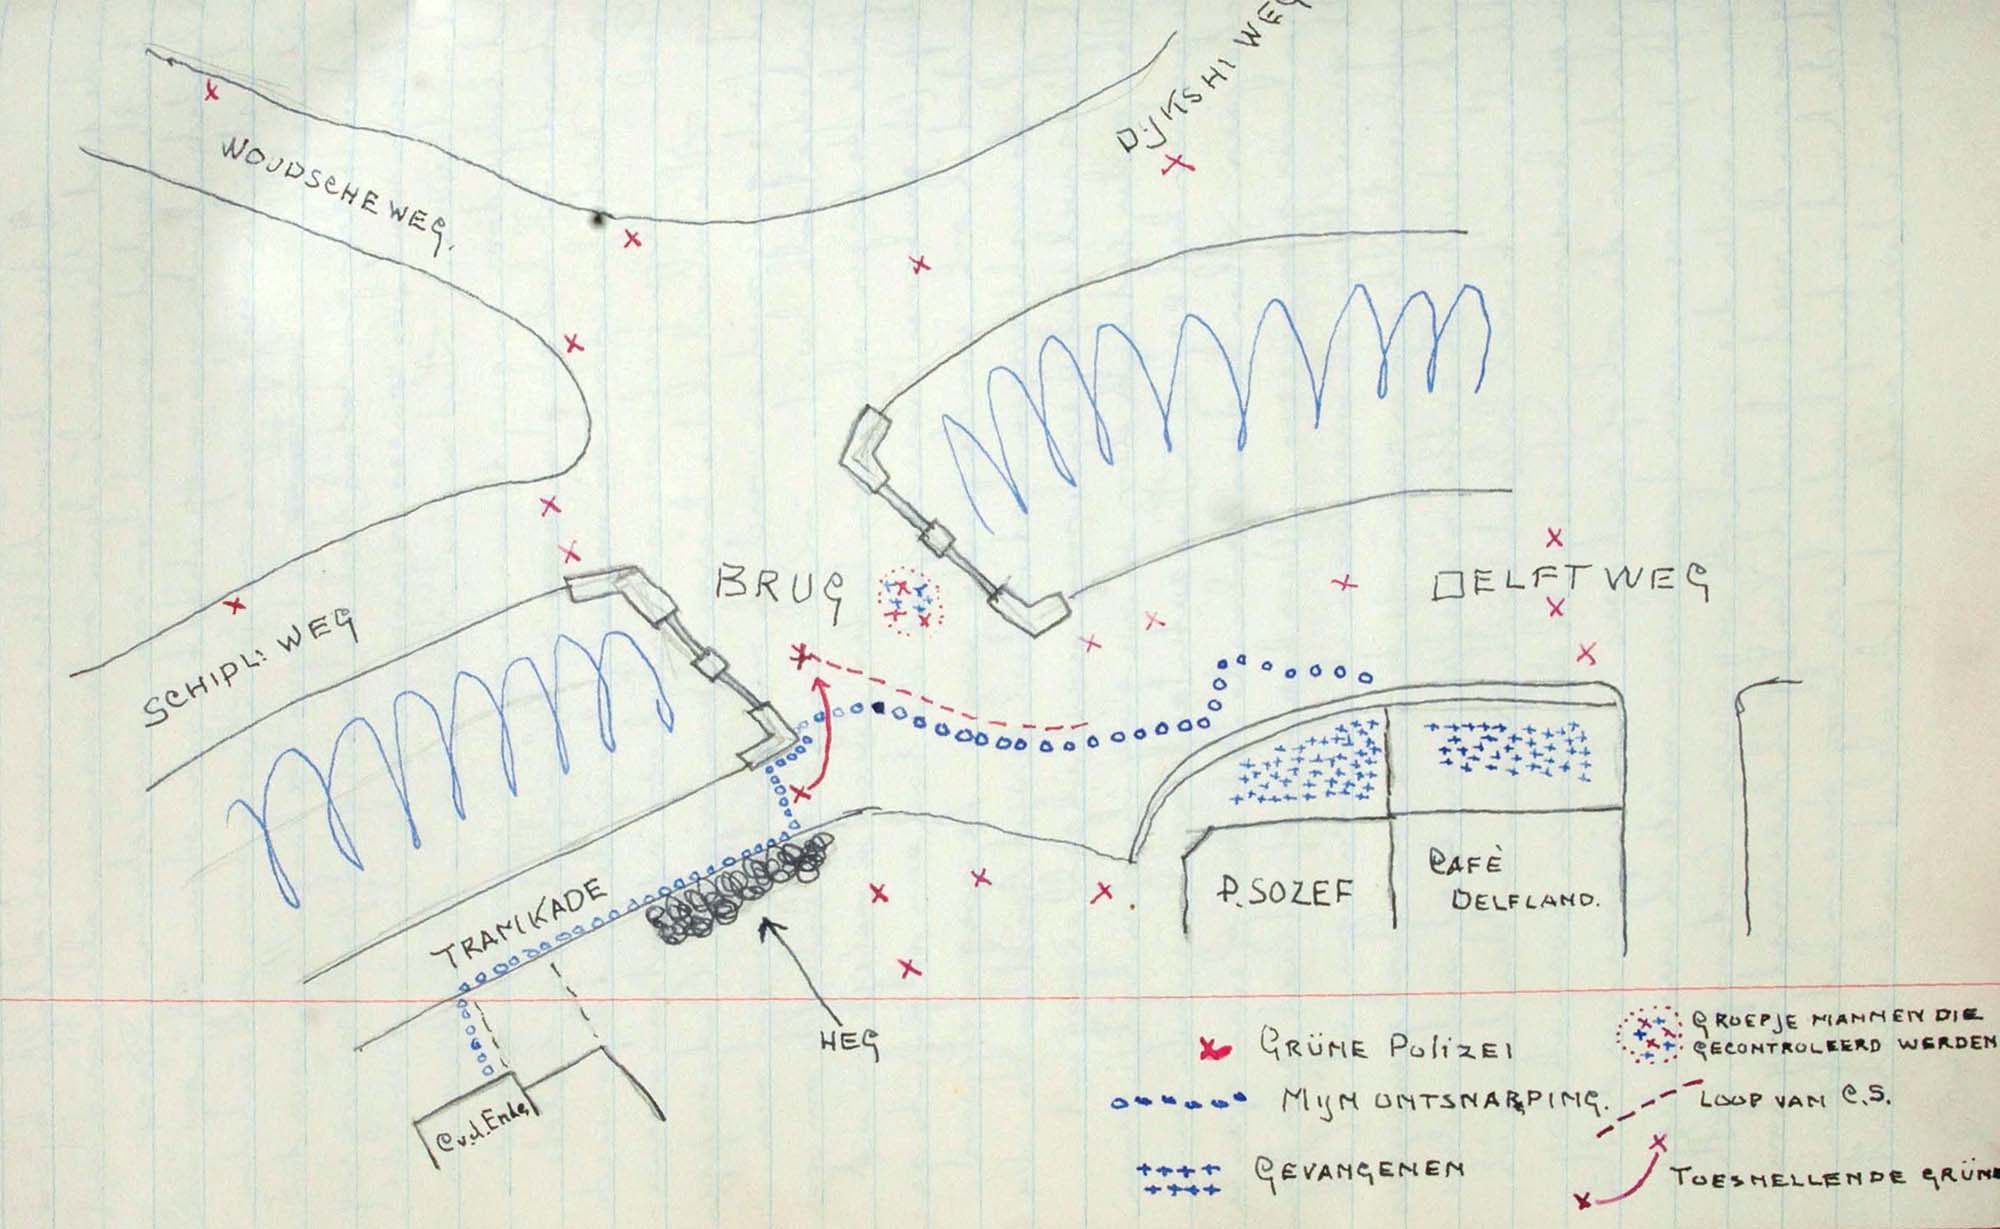 DIJKSHI WEG
WOUDSCHEWEG.
BRUG
DELFTWEG
SCHIPL: WEG
TRAMKADE
P. SOZEF
CAFÈ
DELFLAND.
HEG
C.v.d. Ende
GRÜNE POLIZEI
MIJN ONTSNAPPING.
GEVANGENEN
GROEPJE MANNEN DIE
GECONTROLEERD WERDEN
LOOP VAN C.S.
TOESNELLENDE GRÜNE